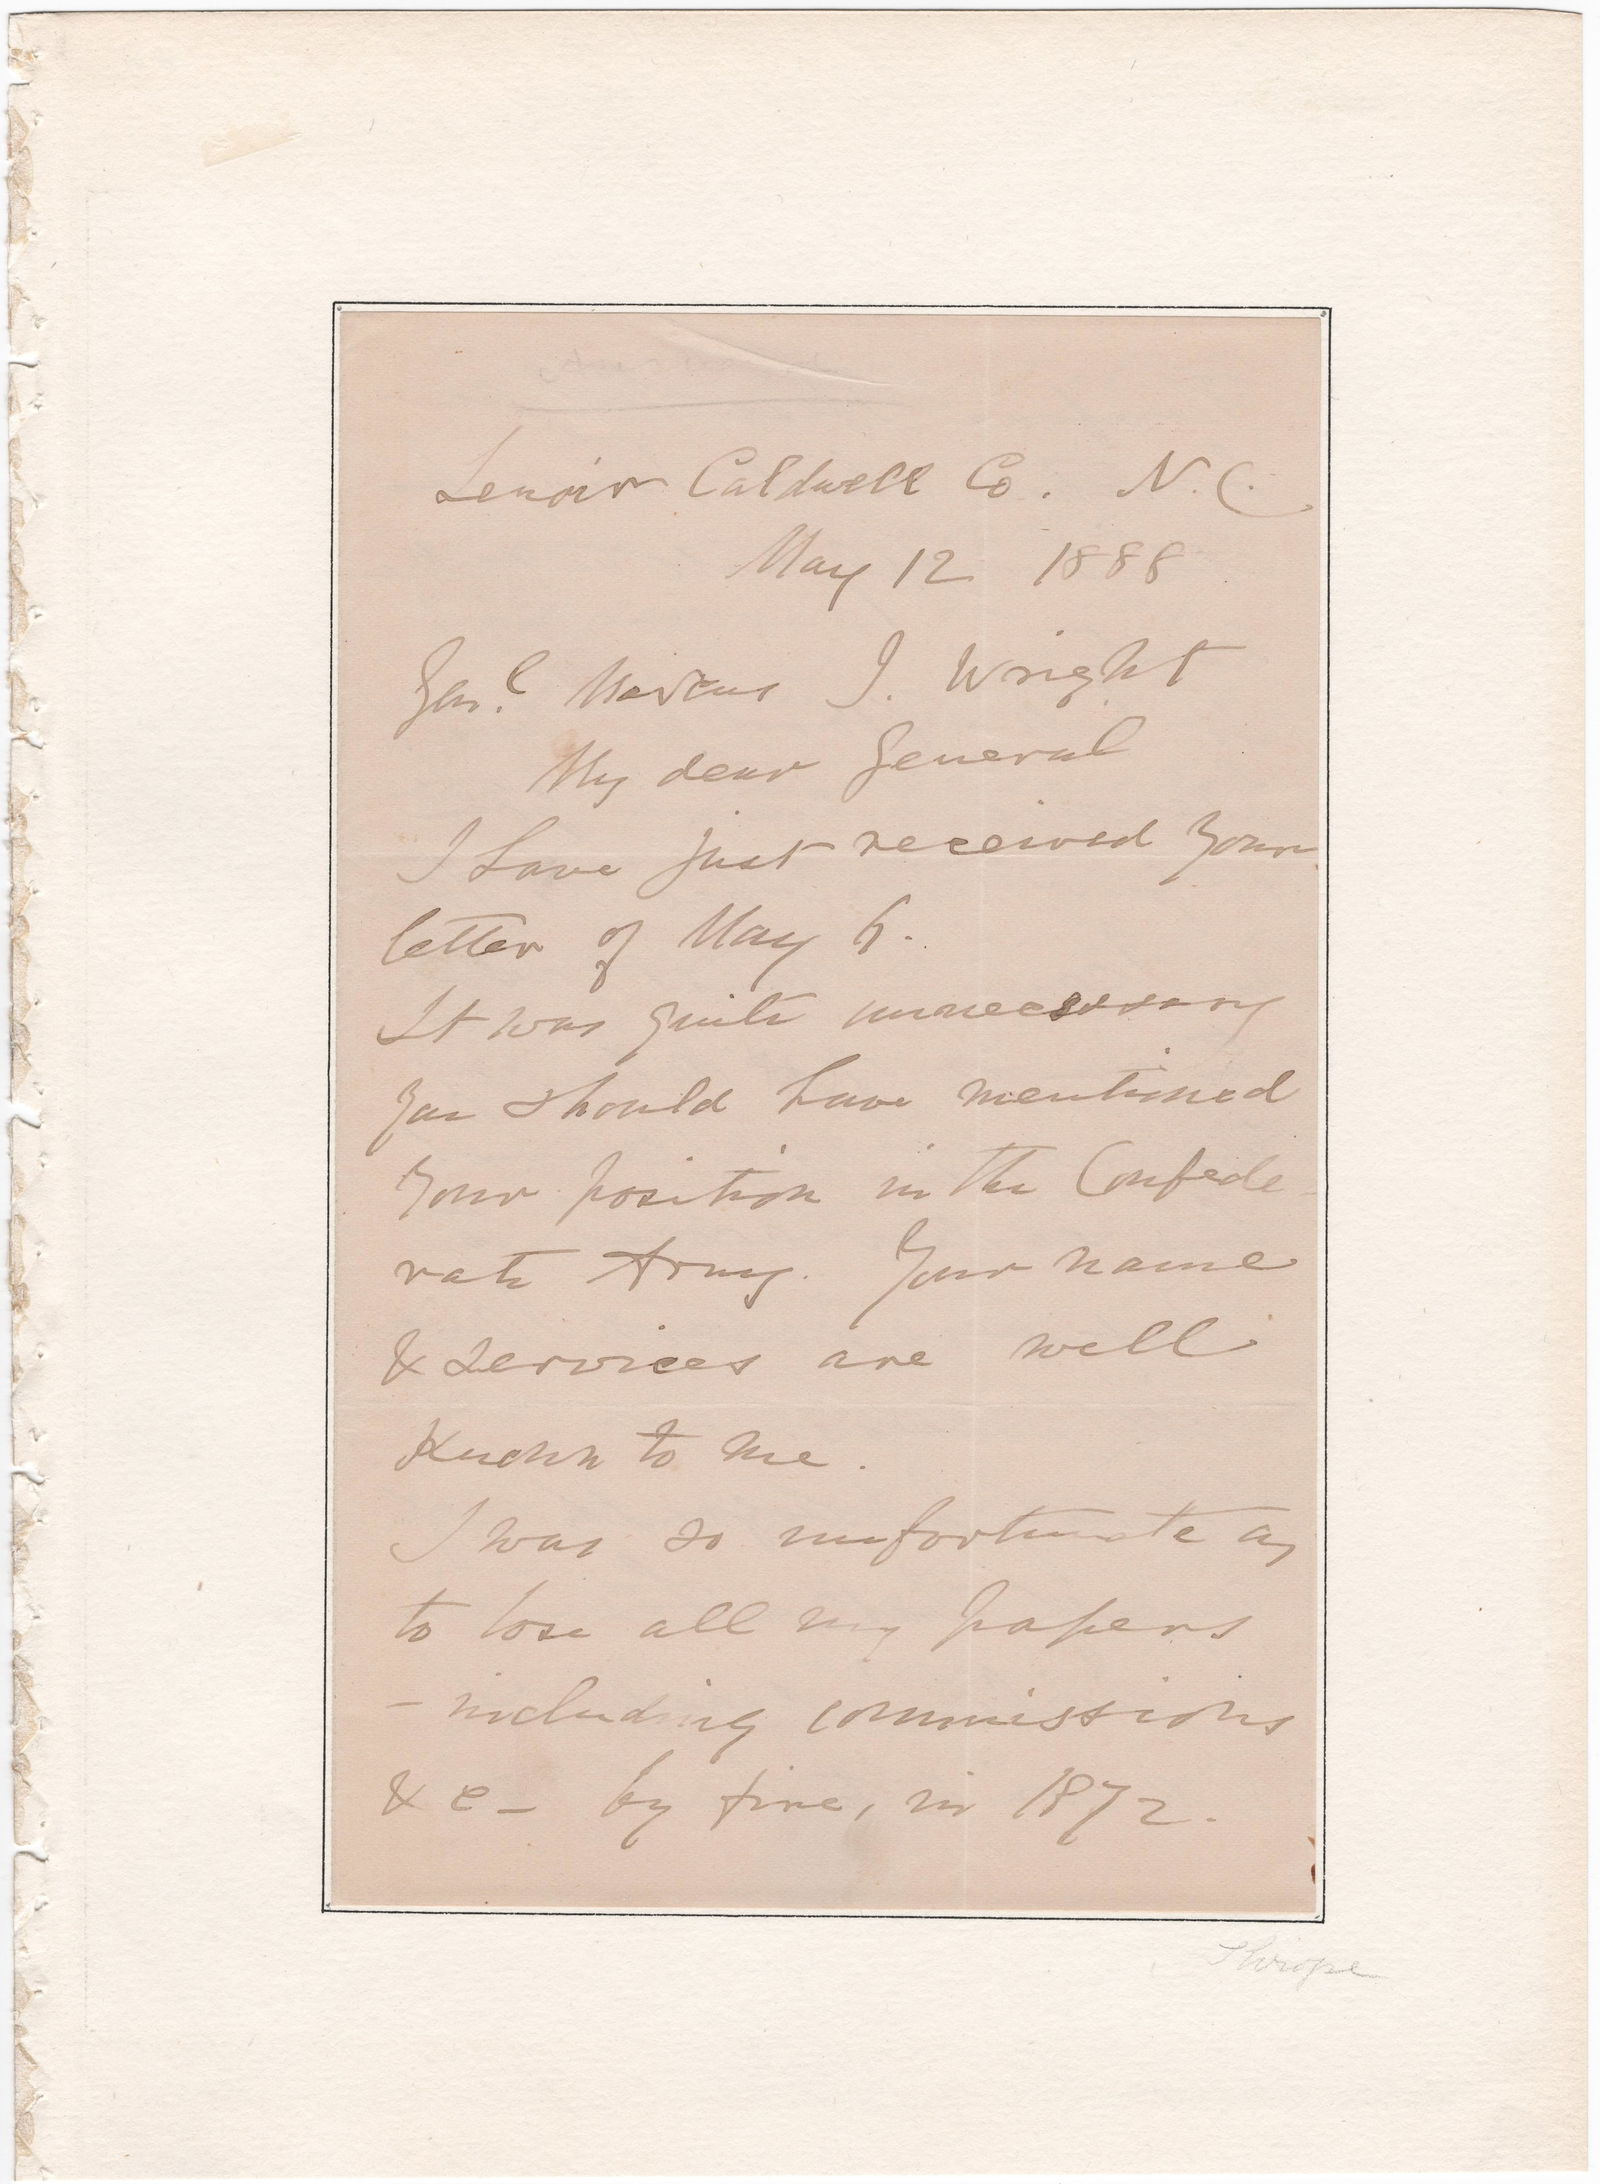 Lenoir Caldwell Co. N.C.
May 12 1888
Genl. Marcus J. Wright
My dear General
I have just received your
letter of May 6.
It was quite unnecessary
you should have mentioned
your position in the Confede-
rate Army. Your name
& services are well
known to me.
I was so unfortunate as
to lose all my papers
- including commissions
& c - by fire, in 1872.